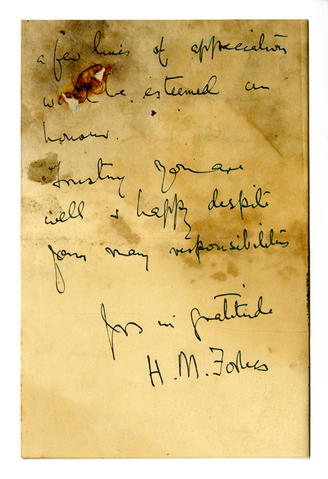 a few lines of appreciation
would be esteemed an
honour.
Trusting you are
well & happy despite
your many responsibilities
Yrs in gratitude
H. M. Forbes